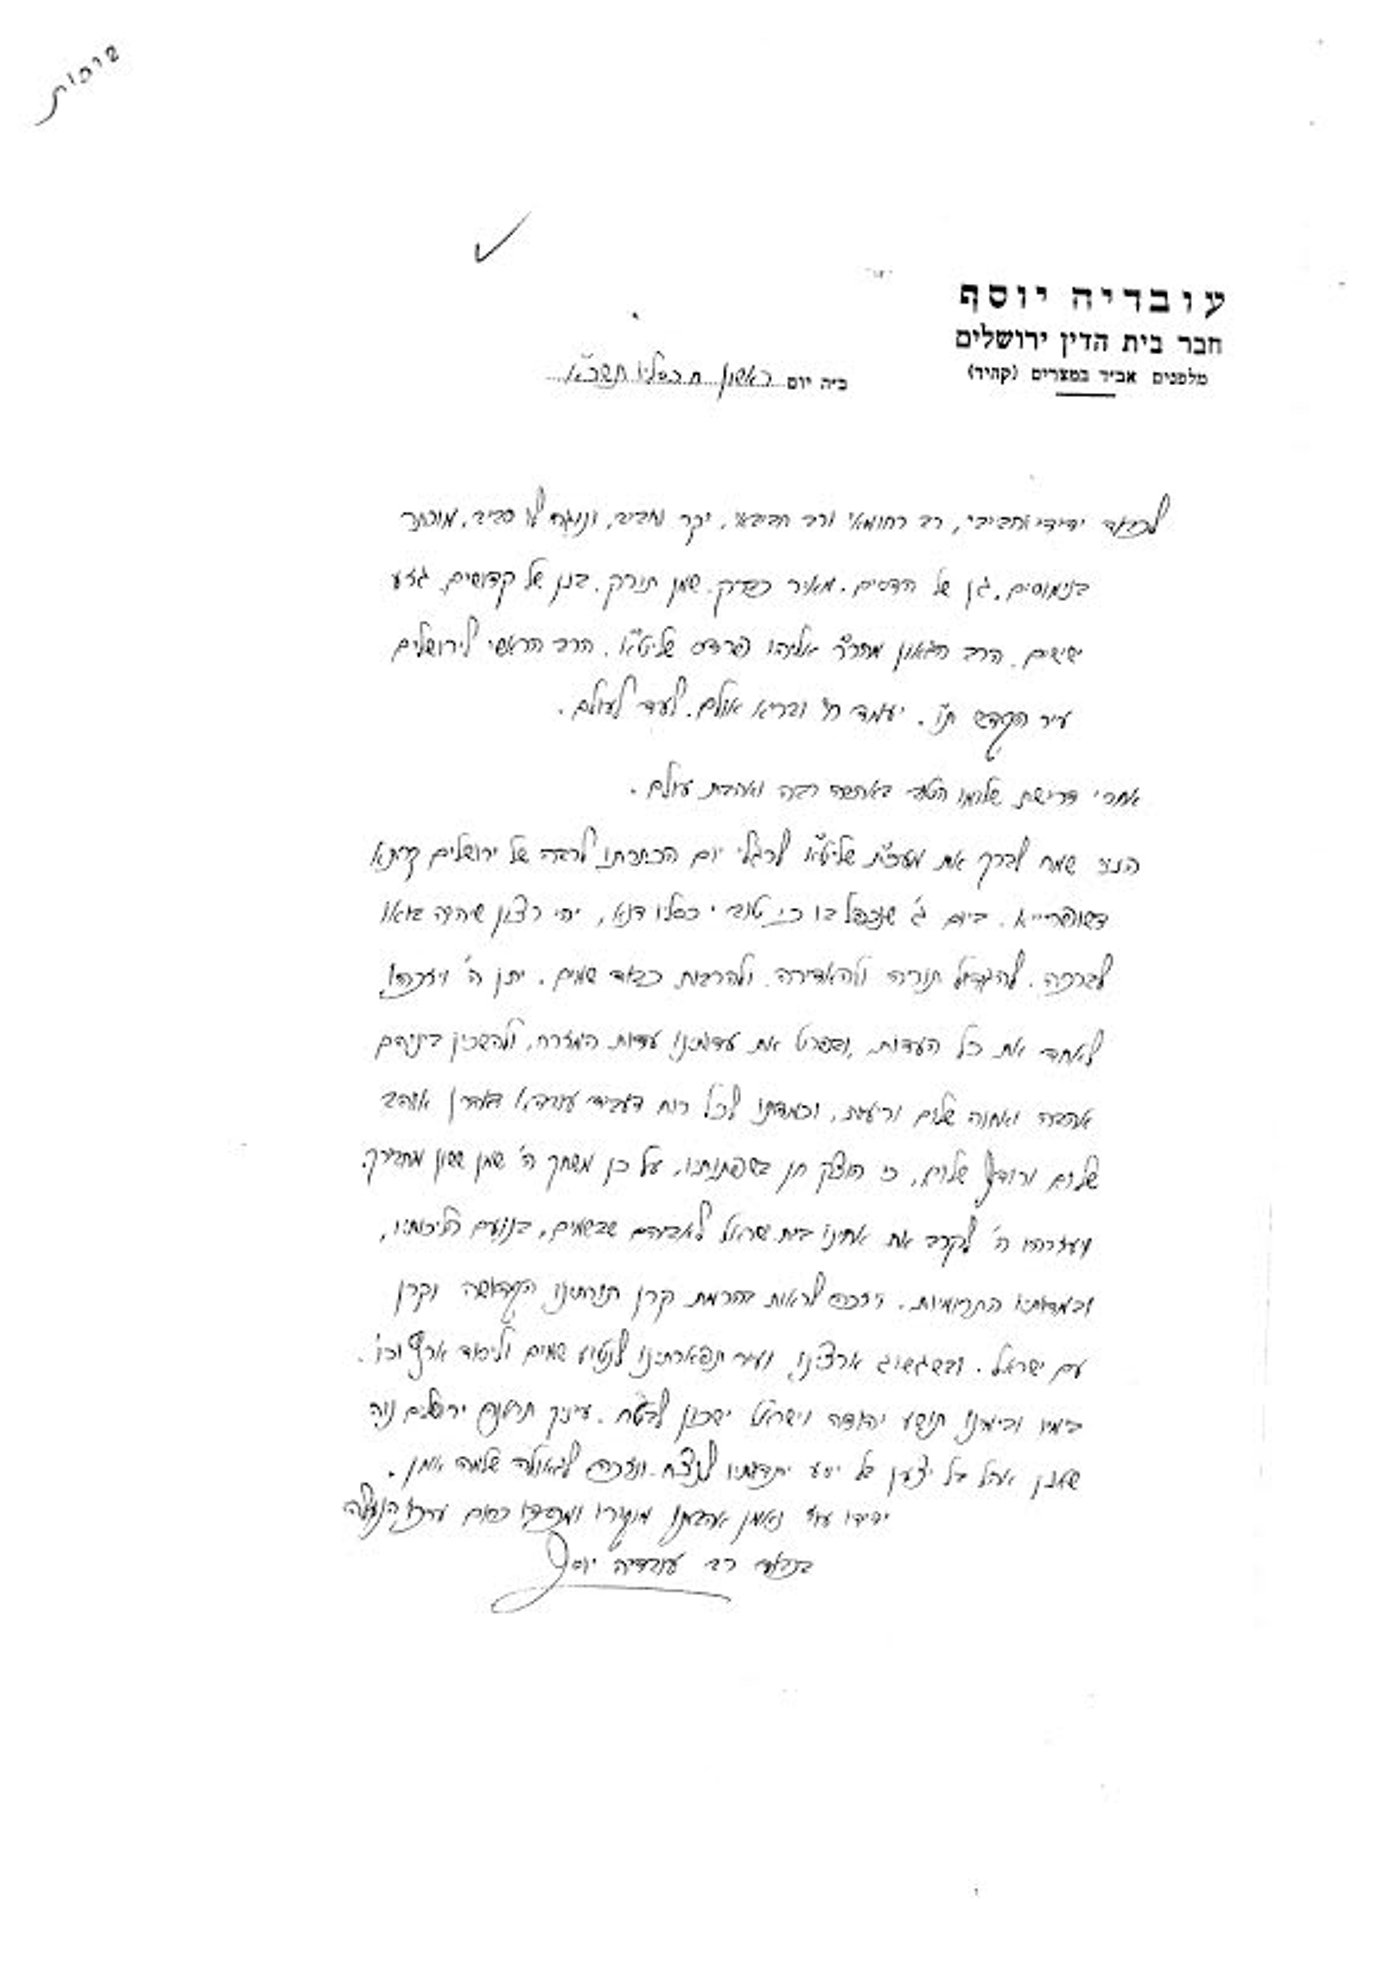 ברכות
עובדיה יוסף
חבר בית הדין ירושלים
מלפנים אב״ד במצרים (קהיר)
ב״ה יום ראשון ח כסליו תשכ״א
לכבוד ידידי וחביבי, רב רחומאי ורב חביבאי, יקר וחביב, ונוגה לו סביב, מוכתר
בנימוסים, גן של הדסים. מאיר כספיר. שמן תורק. בנן של קדושים. גזע
ישישים. הרב הגאון מהר״ר אליהו פרדס שליט״א. הרב הראשי לירושלים
עיר הקדש ת״ו. יעמד חי ובריא אולם. לעד לעולם.
אחרי דרישת שלומו הטוב באהבה רבה ואהבת עולם.
הנני שמח לברך את מעכ״ת שליט״א לרגלי יום הכתרתו לרבה של ירושלים קרתא
דשופרייא. ביום ג׳ שנכפל בו כי טוב י כסליו דנא, יהי רצון שיהיה בואו
לברכה. להגדיל תורה ולהאדירה. ולהרבות כבוד שמים. יתן ה׳ ויזכהו
לאחד את כל העדות, ובפרט את עדותנו עדות המזרח, ולהשכין ביניהם
אהבה ואחוה שלום וריעות, וכמדתו לכל רוח דעביד עובדא דאהרן אוהב
שלום ורודף שלום, כי הוצק חן בשפתותיו, על כן משחך ה׳ שמן ששון מחבירך.
ויעזרהו ה׳ לקרב את אחינו בית ישראל לאביהם שבשמים, בנועם הליכותיו,
ובמדותיו התרומיות. ויזכה לראות בהרמת קרן תורתינו הקדושה וקרן
עם ישראל. ובשגשוג ארצינו, ועיר תפארתינו לנטוע שמים וליסוד ארץ וכו׳.
בימיו ובימינו תושע יהודה וישראל ישכון לבטח. עיניך תראנה ירושלים נוה
שאנן אהל בל יצען בל יסע יתדותיו לנצח. ונזכה לגאולה שלמה אמן.
ידידו עוז נאמן אהבתו מוקירו ומכבדו כרום ערכו הנעלה
עובדיה יוסף